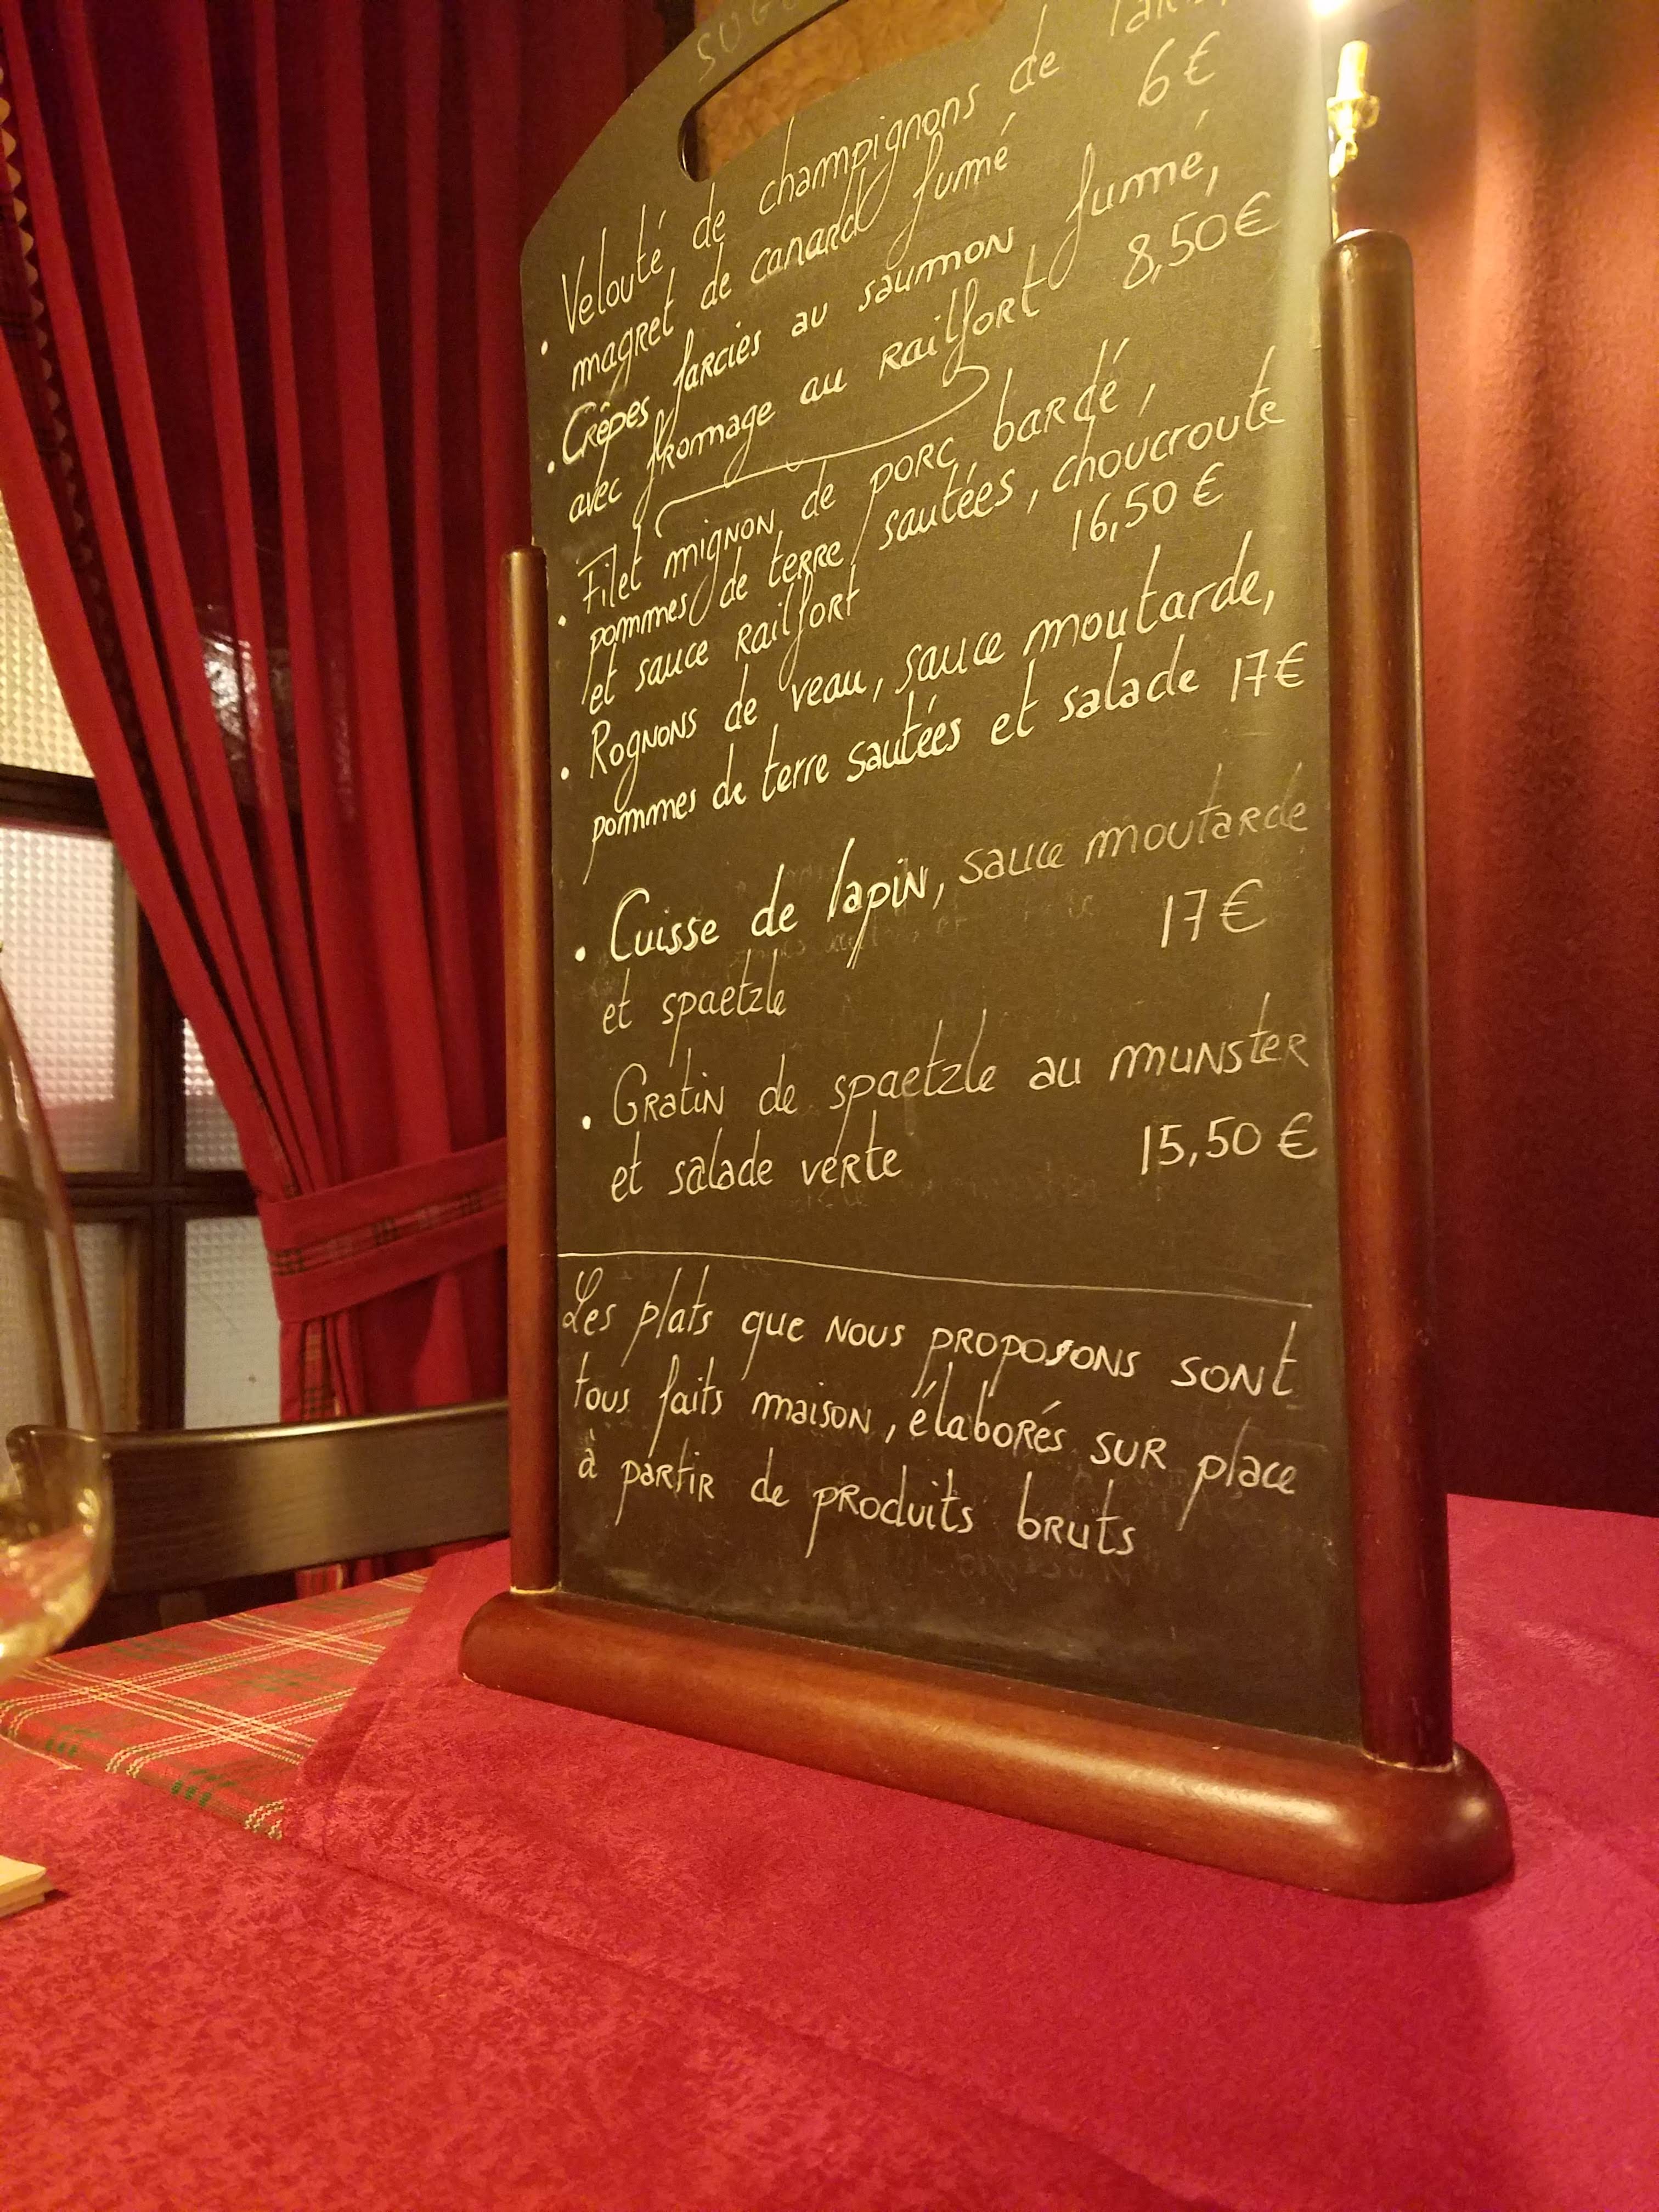 Velouté de champignons de
magret de canard fumé 6€
. Crêpes farcies au saumon fumé,
avec fromage au raifort 8,50€
. Filet mignon de porc bardé,
pommes de terre sautées, choucroute
et sauce raifort 16,50 €
. Rognons de veau, sauce moutarde,
pommes de terre sautées et salade 17€
. Cuisse de lapin, sauce moutarde
et spaetzle 17€
. Gratin de spaetzle au munster
et salade verte 15,50 €
Les plats que nous proposons sont
tous faits maison, élaborés sur place
à partir de produits bruts